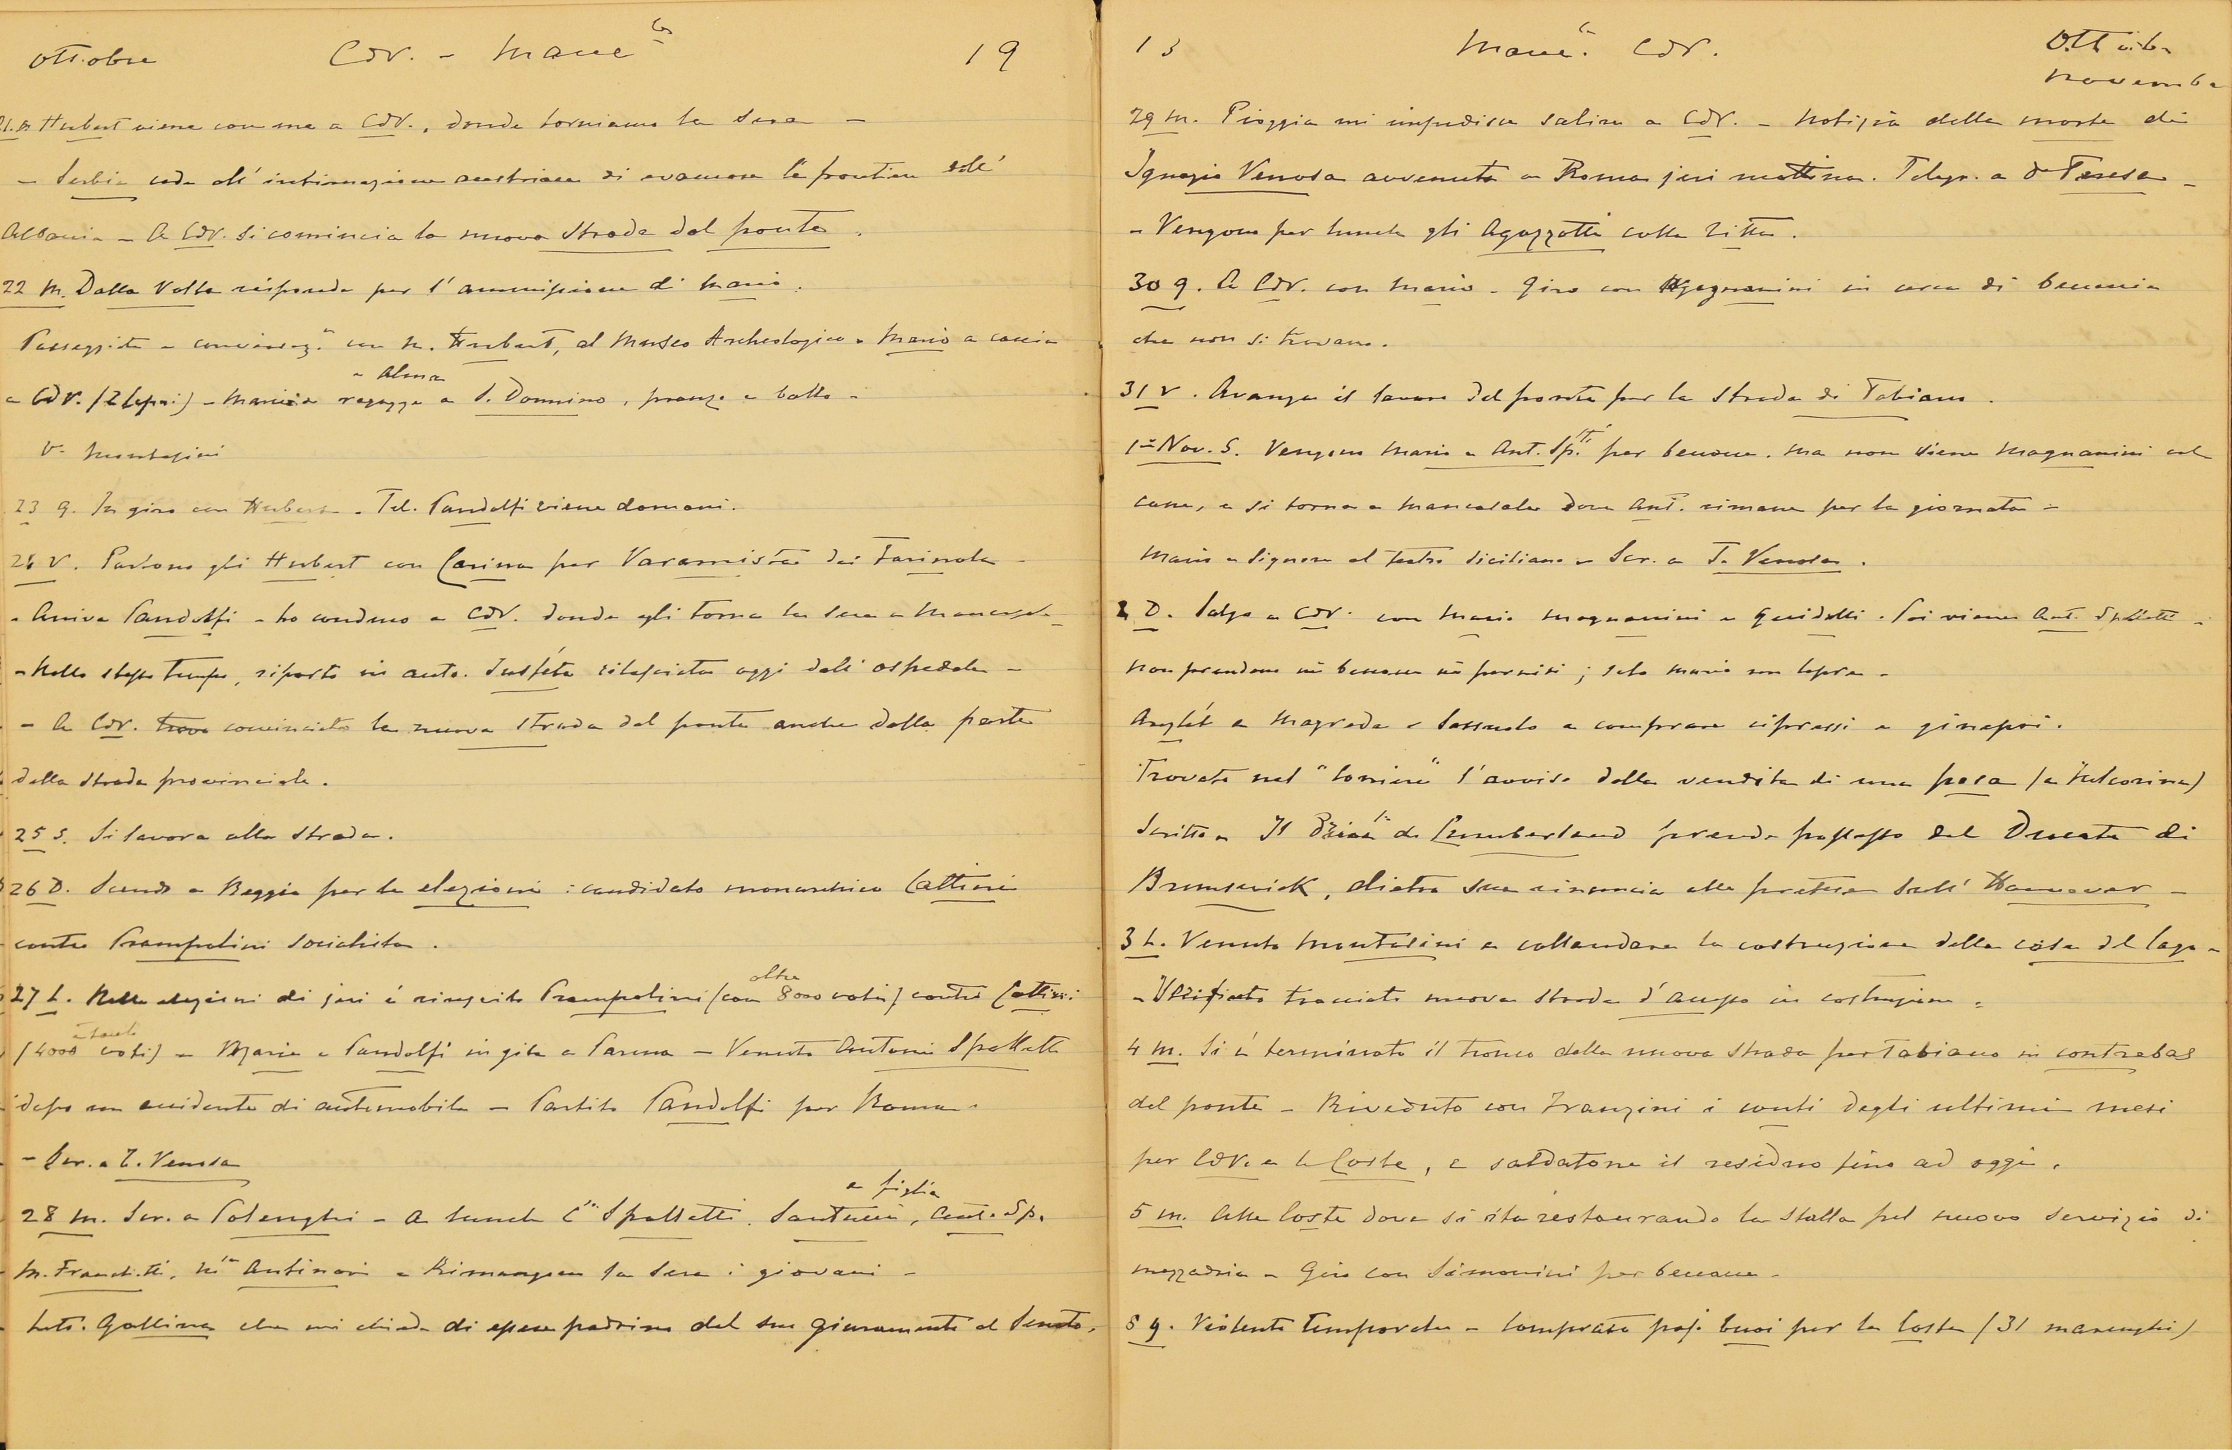 Ottobre CdV. - Manc^le 19
21. M Herbert viene con me a CdV., donde torniamo la sera -
- Serbia cede all'intimazione austriaca di evacuare le frontiere dell'
Albania - A CdV. si comincia la nuova strada del ponte.
22 M. Dalla Volta risponde per l'ammissione di Mario.
Passeggiata e conversaz. con M. Herbert, al Museo Archeologico - Mario a caccia
a CdV. (2 lepri) - Maurizia ragazze e Alma a S. Donnino, pranzo e ballo -
V. Montesini
23 G. In giro con Herbert - Tel. Pandolfi viene domani.
24 V. Partono gli Herbert con Carina per Varamista dei Farinola -
- Arriva Pandolfi - Lo conduco a CdV. donde egli torna la sera a Mancasale -
- Nello stesso tempo, riporto in auto. rilasciata oggi dall'ospedale -
- A CdV. trovo cominciata la nuova strada del ponte anche dalla parte
della strada provinciale.
25 S. Si lavora alla strada.
26 D. Scendo a Reggio per le elezioni: candidato monarchico Cottini
contro Prampolini socialista.
27 L. Nelle elezioni di jeri è riuscito Prampolini (con oltre 8000 voti) contro Cottini
(4000 e tanti voti) - Mario e Pandolfi in gita a Parma - Venuto Antonio Spalletti
dopo un accidente di automobile - Partito Pandolfi per Roma -
- Scr. a T. Venosa
28 M. Scr. a Polenghi - A lunch C^ssa Spalletti, Santucci e figlia, Ant. Sp.
M. Franchetti, Antinori - Rimangono la sera i giovani -
Lett. Gallina che mi chiede di essere padrino del suo giuramento al Senato.
13 Manc^e. CdV. Ottobre
Novembre
29 M. Pioggia mi impedisce salire a CdV. - Notizia della morte di
Ignazio Venosa avvenuta a Roma jeri mattina. Telegr. a d^a Teresa -
- Vengono per lunch gli Agazzotti colla Zitta.
30 G. A CdV. con Mario - Giro con Magnanini in cerca di beccacce
che non si trovano.
31 V. Avanza il lavoro del ponte per la strada di Tabiano.
1° Nov. S. Vengono Mario e Ant. Sp.tti per beccacce. Ma non viene Magnanini col
cane, e si torna a Mancasale dove Ant. rimane per la giornata -
Mario e Signore al teatro siciliano - Scr. a T. Venosa.
2 D. Salgo a CdV. con Mario Magnanini e Guidetti. Poi viene Ant. Spalletti -
Non prendono nè beccacce nè pernici; solo Mario una lepre.
a Magreda e Sassuolo a comprare cipressi e ginepri.
Trovato nel "Corriere" l'avviso della vendita di una pesa (a Fulcorina)
Scritto - Il de Cumberland prende possesso del Ducato di
Brunswick, dietro sua rinuncia alle pretese sull'Hannover -
3 L. Venuto Montesini a collaudare la costruzione della casa del lago -
- Verificato tracciato nuova strada d'accesso in costruzione.
4 M. Si è terminato il tronco della nuova strada per Tabiano in contrebas
del ponte - Riveduto con Franzini i conti degli ultimi mesi
per CdV. e le Coste, e saldatone il residuo fino ad oggi.
5 M. Alle Coste dove si sta restaurando la stalla pel nuovo servizio di
mezzadria - Giro con Simonini per beccacce -
6 G. Violento temporale - Comprato paj. buoi per le Coste (31 marenghi)